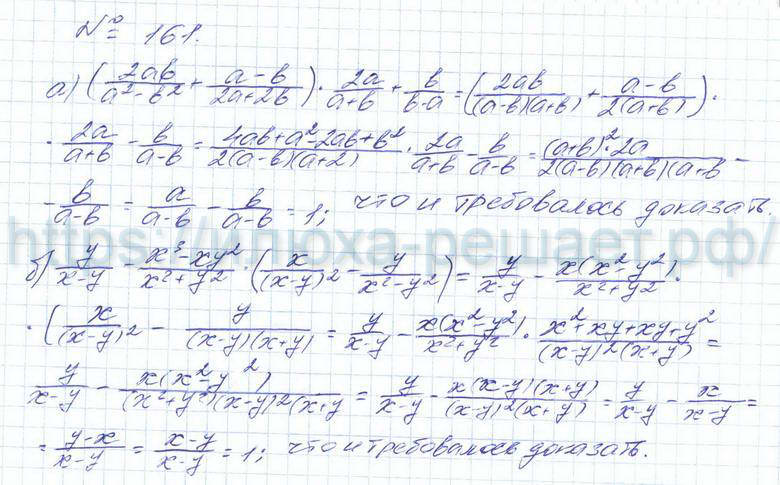 № 161.
а) (2ab/(a²-b²) + (a-b)/(2a+2b)) · 2a/(a+b) + b/(b-a) = (2ab/((a-b)(a+b)) + (a-b)/(2(a+b))) ·
· 2a/(a+b) - b/(a-b) = (4ab+a²-2ab+b²)/(2(a-b)(a+2)) · 2a/(a+b) - b/(a-b) = ((a+b)²·2a)/(2(a-b)(a+b)(a+b) -
- b/(a-b) = a/(a-b) - b/(a-b) = 1; что и требовалось доказать.
б) y/(x-y) - (x³-xy²)/(x²+y²) · (x/(x-y)² - y/(x²-y²)) = y/(x-y) - x(x²-y²)/(x²+y²) ·
· (x/(x-y)² - y/((x-y)(x+y)) = y/(x-y) - x(x²-y²)/(x²+y²) · (x²+xy+xy+y²)/((x-y)²(x+y)) =
y/(x-y) - x(x²-y²)/((x²+y²)(x-y)²(x+y) = y/(x-y) - x(x-y)(x+y)/((x-y)²(x+y)) = y/(x-y) - x/(x-y) =
= (y-x)/(x-y) = (x-y)/(x-y) = 1; что и требовалось доказать.